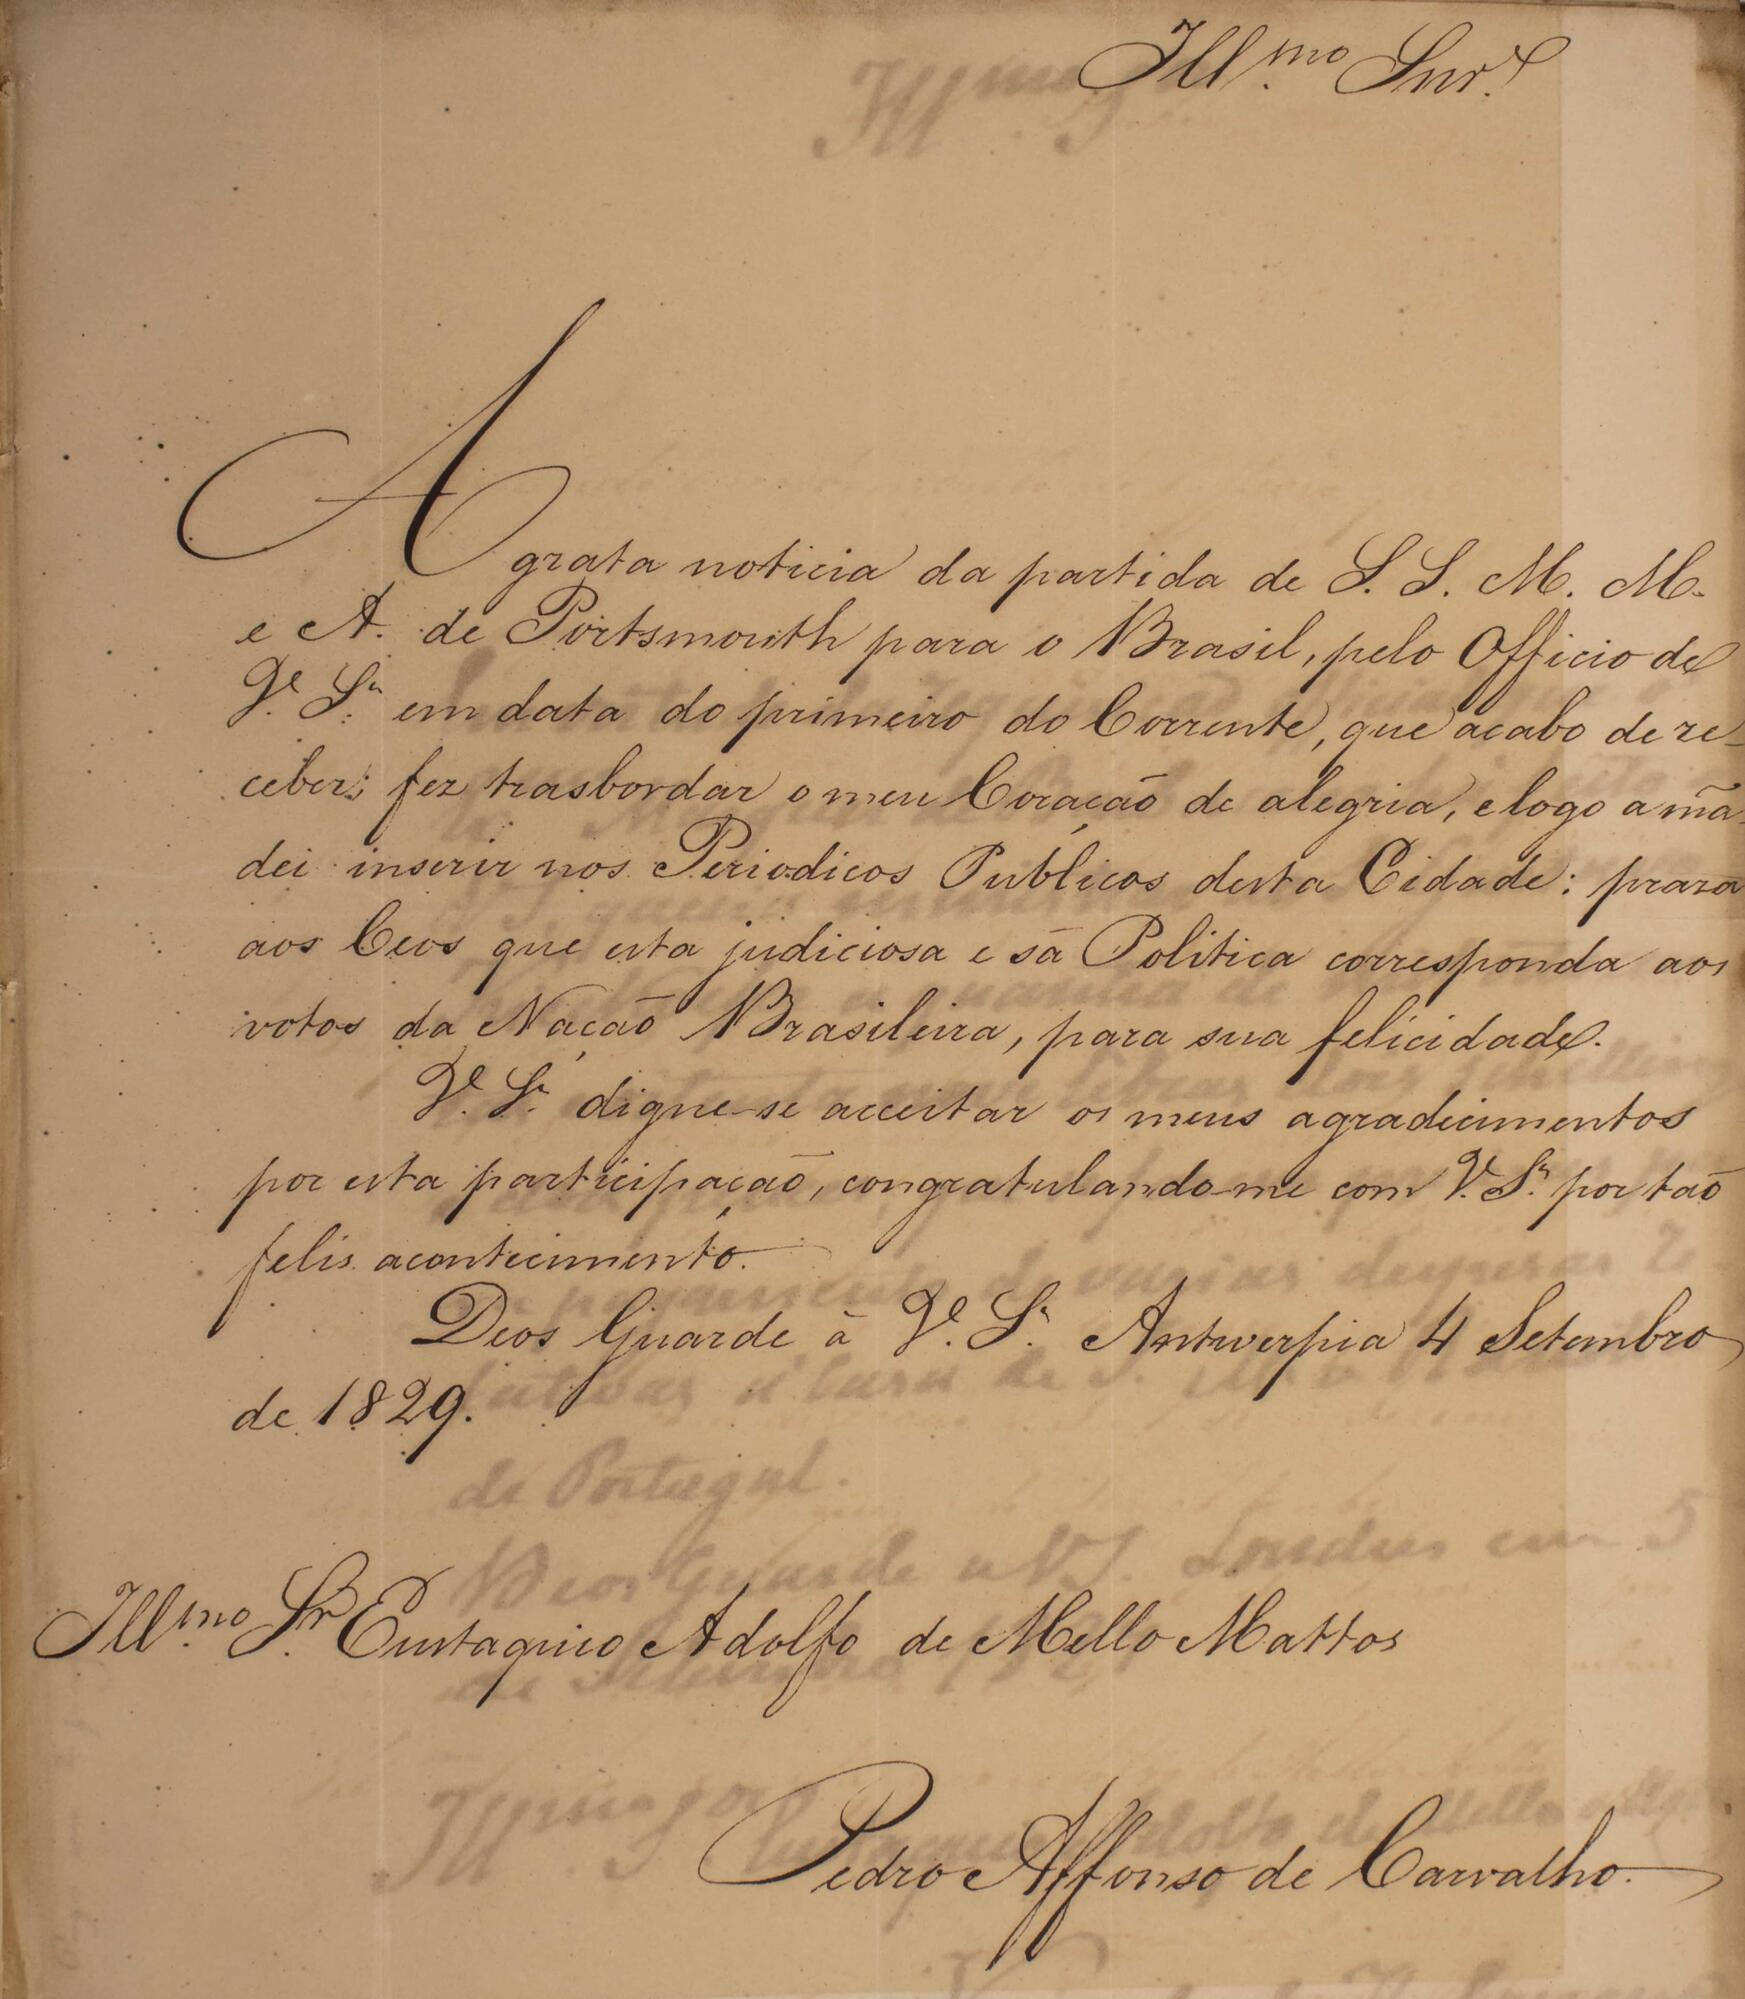 Ill.mo Snr.
A grata noticia da partida de S. S. M. M.
e A. de Portsmouth para o Brasil, pelo Officio de
V. Sa. em data do primeiro do Corrente, que acabo de re-
ceber; fez trasbordar o meu Coração de alegria, e logo a mã-
dei inserir nos Periodicos Publicos desta Cidade: praza
aos Ceos que esta judiciosa e sã Politica corresponda aos
votos da Nação Brasileira, para sua felicidade.
V. Sa. digne-se acceitar os meus agradecimentos
por esta participação, congratulando-me com V. Sa. por tão
felis acontecimento.
Deos Guarde à V. Sa. Antwerpia 4 Setembro
de 1829.
de Portugal.
Ill.mo Sr. Eustaquio Adolfo de Mello Mattos
Pedro Affonso de Carvalho.